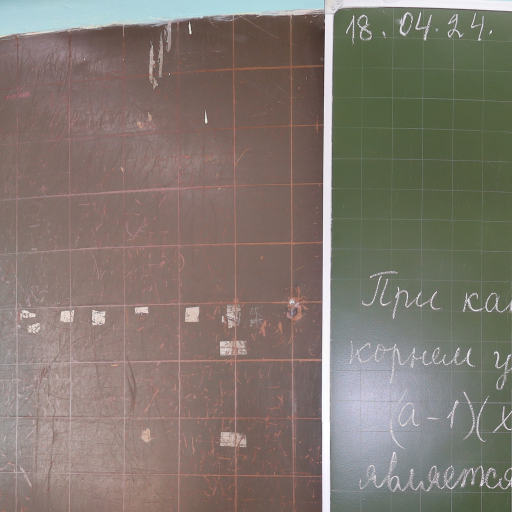 18.04.24.
При ка
корнем у
(а-1)(х
является